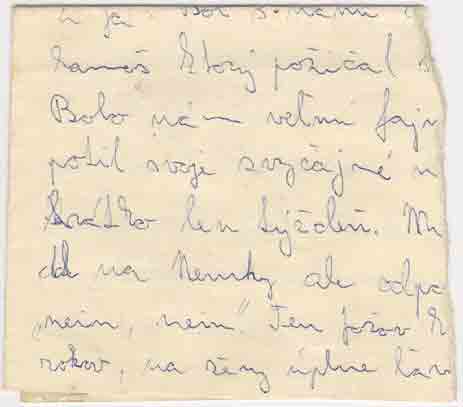 ja. Bol s nami
kamoš ktorý požičal
Bolo nám veľmi fajn
potil svoje svyčajné
krátko len týždeň.
na Nemky ale odpo
„nein, nein". Ten Jožov k
rokov, na ženy úplne